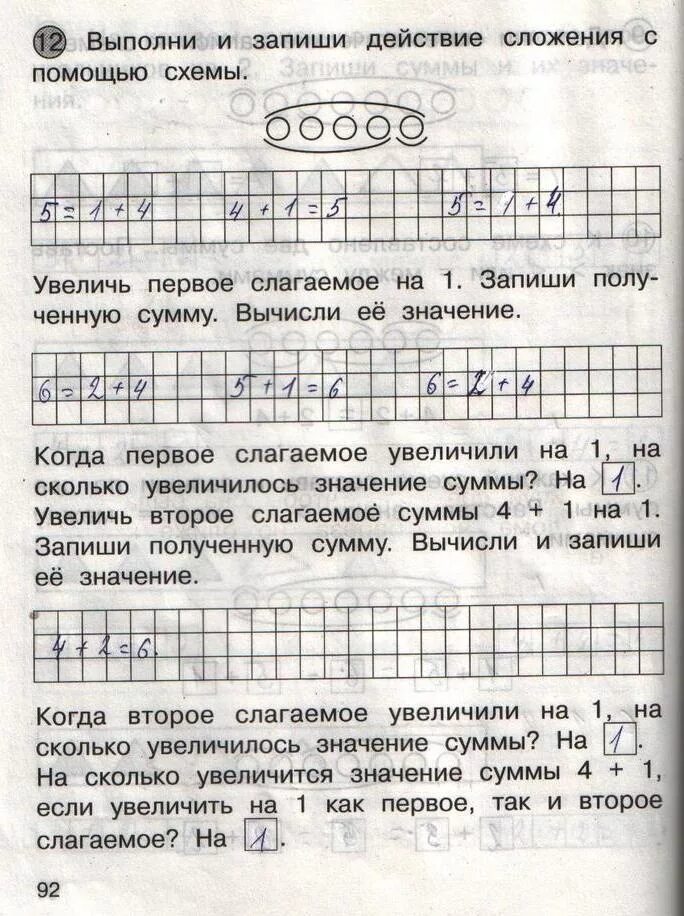 12 Выполни и запиши действие сложения с
помощью схемы.
5 = 1 + 4 4 + 1 = 5 5 = 1 + 4.
Увеличь первое слагаемое на 1. Запиши полу-
ченную сумму. Вычисли её значение.
6 = 2 + 4 5 + 1 = 6 6 = 2 + 4
Когда первое слагаемое увеличили на 1, на
сколько увеличилось значение суммы? На 1.
Увеличь второе слагаемое суммы 4 + 1 на 1.
Запиши полученную сумму. Вычисли и запиши
её значение.
4 + 2 = 6.
Когда второе слагаемое увеличили на 1, на
сколько увеличилось значение суммы? На 1.
На сколько увеличится значение суммы 4 + 1,
если увеличить на 1 как первое, так и второе
слагаемое? На 1.
92